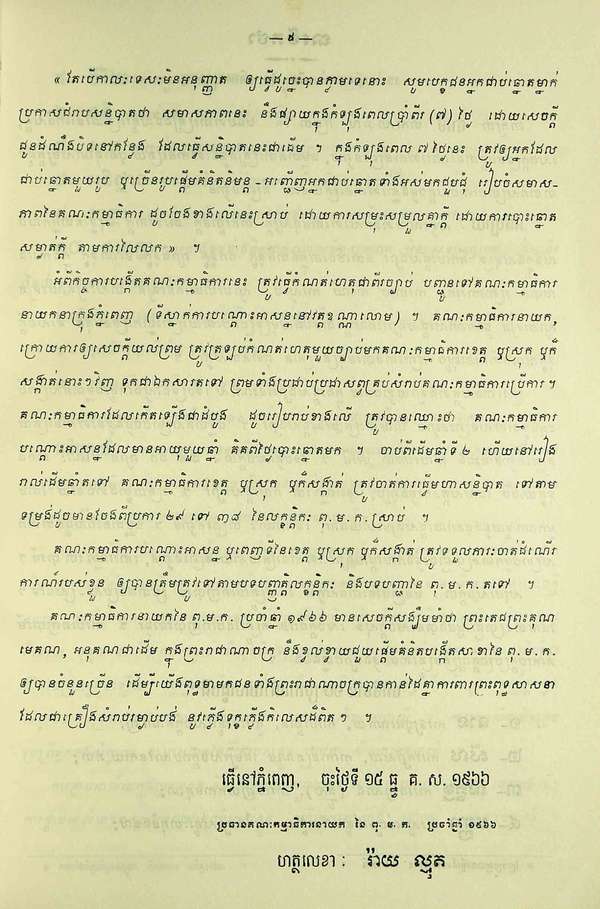 — ៩ —
« តែបើកាលៈទេសៈមិនអនុញ្ញាត ឲ្យធ្វើដូច្នេះបានតាមទេនោះ សូមបេក្ខជនអ្នកជាប់ឆ្នោតម្នាក់
ប្រកាសជំរាបសន្និបាតថា សមាសភាពនេះ នឹងផ្សាយក្នុងកំឡុងពេលប្រាំពីរ (៧) ថ្ងៃ ដោយសេចក្តី
ជូនដំណឹងបិទនៅកន្លែង ដែលធ្វើសន្និបាតនេះជាដើម ។ ក្នុងកំឡុងពេល ៧ ថ្ងៃនេះ ត្រូវឲ្យអ្នកដែល
ជាប់ឆ្នោតមួយរូប ឬច្រើនរូបផ្តើមគំនិតនិមន្ត - អញ្ជើញអ្នកជាប់ឆ្នោតទាំងអស់មកជួបជុំ រៀបចំសមាស-
ភាពនៃគណៈកម្មាធិការ ដូចចែងខាងលើនេះស្រាប់ ដោយការសម្រុះសម្រួលគ្នាក្តី ដោយការបោះឆ្នោត
សម្ងាត់ក្តី តាមការលៃលក » ។
អំពីកិច្ចការបង្កើតគណៈកម្មាធិការនេះ ត្រូវធ្វើកំណត់ហេតុជាពីរច្បាប់ បញ្ជូនទៅគណៈកម្មាធិការ
នាយកនាក្រុងភ្នំពេញ (ទីស្នាក់ការបណ្តោះអាសន្ននៅវត្តឧណ្ណាលោម) ។ គណៈកម្មាធិការនាយក,
ក្រោយការឲ្យសេចក្តីយល់ព្រម ត្រូវត្រឡប់កំណត់ហេតុមួយច្បាប់មកគណៈកម្មាធិការខេត្ត ឬស្រុក ឬក៏
សង្កាត់នោះៗវិញ ទុកជាឯកសារតទៅ ព្រមទាំងប្រដាប់ប្រដាសព្វគ្រប់សំរាប់គណៈកម្មាធិការប្រើការ។
គណៈកម្មាធិការដែលកើតឡើងជាដំបូង ដូចរៀបរាបខាងលើ ត្រូវបានឈ្មោះថា គណៈកម្មាធិការ
បណ្តោះអាសន្នដែលមានអាយុមួយឆ្នាំ គិតពីថ្ងៃបោះឆ្នោតមក ។ ចាប់ពីដើមឆ្នាំទី ២ ហើយនៅរៀង
រាល់ដើមឆ្នាំតទៅ គណៈកម្មាធិការខេត្ត ឬស្រុក ឬក៏សង្កាត់ ត្រូវចាត់ការធ្វើមហាសន្និបាត ទៅតាម
ទម្រង់ដូចមានចែងពីប្រការ ២៩ ទៅ ៣៨ នៃលក្ខន្តិកៈ ពុ. ម. ក. ស្រាប់ ។
គណៈកម្មាធិការបណ្តោះអាសន្ន ឬពេញទីនៃខេត្ត ឬស្រុក ឬក៏សង្កាត់ ត្រូវទទួលភារៈចាត់ដំណើរ
ការណ៍របស់ខ្លួន ឲ្យបានត្រឹមត្រូវទៅតាមបទបញ្ញត្តិលក្ខន្តិកៈ និងបទបញ្ជានៃ ពុ. ម. ក. តទៅ ។
គណៈកម្មាធិការនាយកនៃ ពុ. ម. ក. ប្រចាំឆ្នាំ ១៩៦៦ មានសេចក្តីសង្ឃឹមមាំថា ព្រះតេជព្រះគុណ
មេគណ, អនុគណជាដើម ក្នុងព្រះរាជាណាចក្រ នឹងខ្វល់ខ្វាយជួយផ្តើមគំនិតបង្កើតសាខានៃ ពុ. ម. ក.
ឲ្យបានចំនួនច្រើន ដើម្បីយើងពុទ្ធមាមកជនទាំងព្រះរាជាណាចក្របានកាន់ដៃគ្នាការពារព្រះពុទ្ធសាសនា
ដែលជាគ្រឿងសំរាប់រម្ងាប់បង់ នូវភ្លើងទុក្ខភ្លើងកិលេសដ៏ពិតៗ ។
ធ្វើនៅភ្នំពេញ, ចុះថ្ងៃទី ១៥ ធ្នូ គ. ស. ១៩៦៦
ប្រធានគណៈកម្មាធិការនាយក នៃ ពុ. ម. ក. ប្រចាំឆ្នាំ ១៩៦៦
ហត្ថលេខា : រ៉ាយ ល្មុត